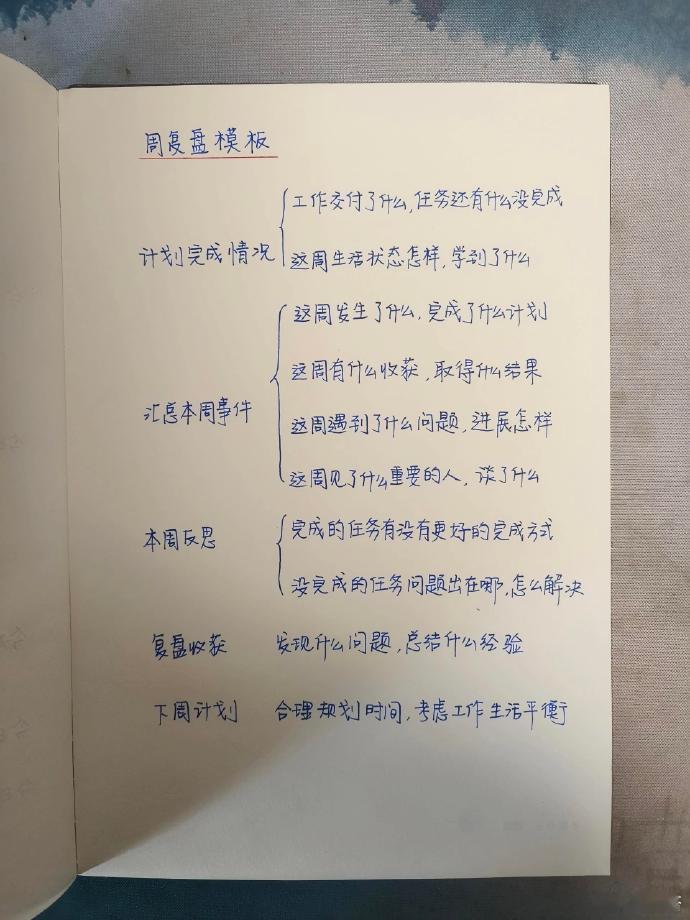 周复盘模板
工作交付了什么,任务还有什么没完成
计划完成情况
这周生活状态怎样,学到了什么
这周发生了什么,完成了什么计划
这周有什么收获,取得什么结果
汇总本周事件
这周遇到了什么问题,进展怎样
这周见了什么重要的人,谈了什么
本周反思
完成的任务有没有更好的完成方式
没完成的任务问题出在哪,怎么解决
复盘收获 发现什么问题,总结什么经验
下周计划 合理规划时间,考虑工作生活平衡